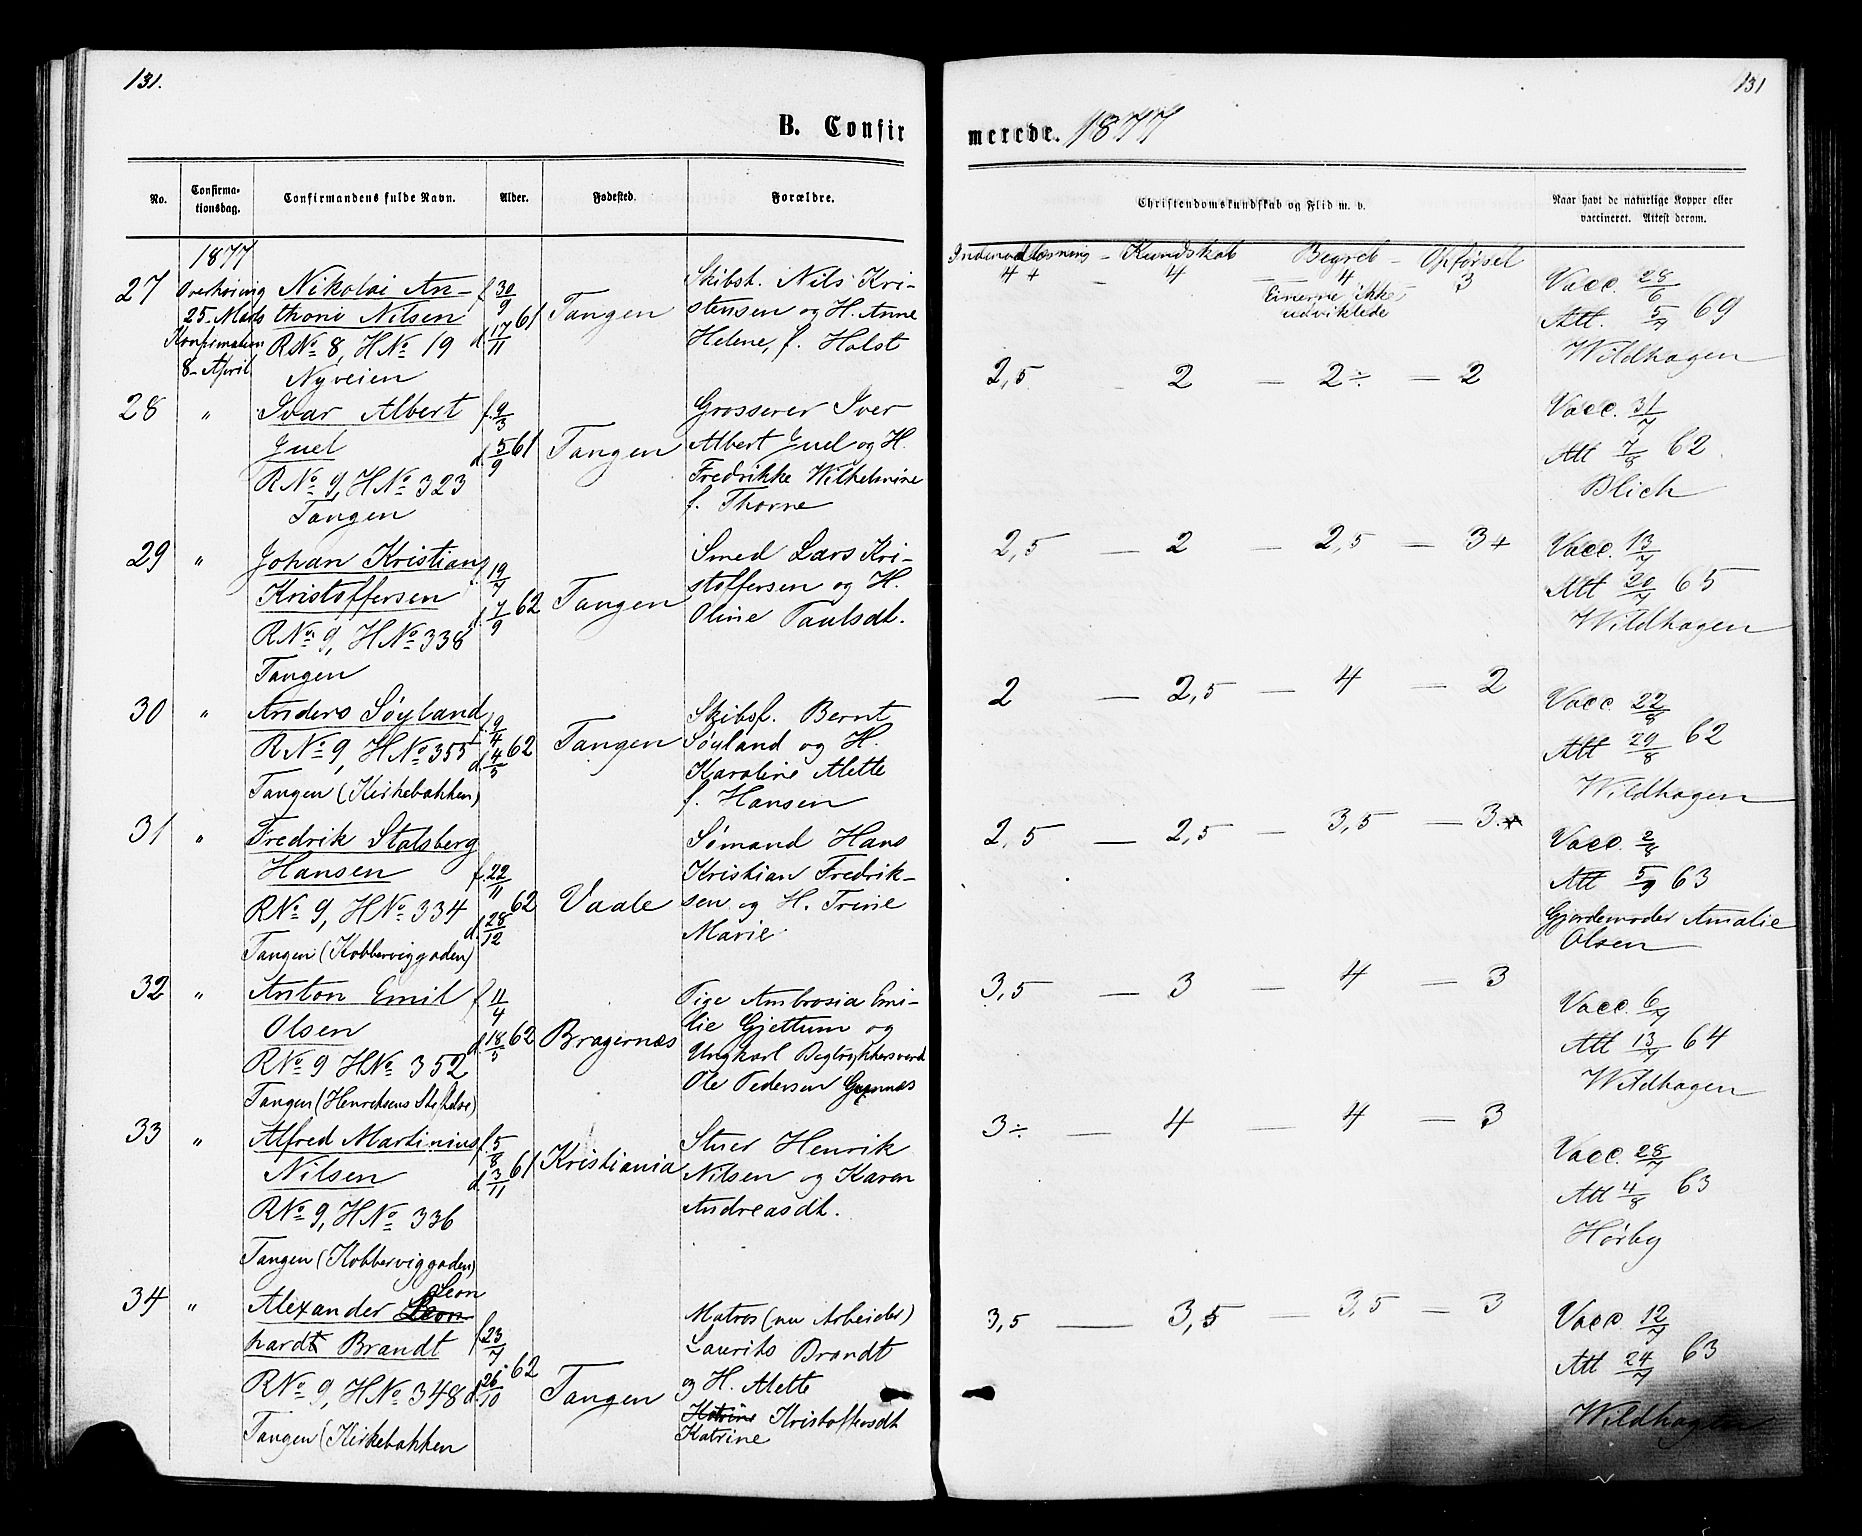 131.
B. Confir
No.
Confirma-
tionsdag.
Confirmandens fulde Navn.
Alder.
Fødested.
Forældre.
1877
27
Overhøring
25 Mars
Konfirmation
8 April
Nikolai An-
thoni Nilsen
R No 8, H No 19
Nyveien
f. 30/9
61
d. 17/11
Tangen
Skibst. Nils Kri-
stensen og H. Anne
Helene, f. Holst
28
"
Ivar Albert
Juel
R No 9, H No 323
Tangen
f. 9/3
d. 5/9 61
Tangen
Grosserer Iver
Albert Juel og H.
Fredrikke Wilhelmine
f. Thorne
29
"
Johan Kristian
Kristoffersen
R No 9, H No 338
Tangen
f. 19/7
d. 7/9 62
Tangen
Smed Lars Kri-
stoffersen og H.
Oline Paulsdt.
30
"
Anders Søyland
R No 9, H No 355
Tangen (Kirkebakken)
f. 9/4
d. 4/5 62
Tangen
Skibsf. Bernt
Søyland og H.
Karoline Alette
f. Hansen
31
"
Fredrik Stalsberg
Hansen
R No 9, H No 334
Tangen (Kobberviggaden)
f. 22/11
62
d. 28/12
Vaale
Sømand Hans
Kristian Fredrik-
sen og H. Trine
Marie
32
"
Anton Emil
Olsen
R No 9 H No 352
Tangen (Henriksens
f. 11/4
d. 18/5 62
Bragernæs
Pige Ambrosia Emi-
lie Gjettum og
Ungkarl
Ole Pedersen
33
"
Alfred Martinius
Nilsen
R No 9, H No 336
Tangen (Kobberviggaden)
f. 5/8
d. 3/11 61
Kristiania
Stuer Henrik
Nilsen og Karen
Andreasdt.
34
"
Leon
Alexander Leon
hardt Brandt
R No 9, H No 348
Tangen (Kirkebakken
f. 23/7
62
d. 26/10
Tangen
Matros (nu Arbeider)
Laurits Brandt
og H. Alette
Katrine Kristoffersdt
Katrine
131
merede. 1877
Christendomskundskab og Flid m. v.
Naar havt de naturlige Kopper eller
vaccineret. Attest derom.
Indenadlæsning - Kundskab - Begreb - Opførsel
4+ - 4 - 4 - 3
Evnerne ikke
udviklede
Vacc. 28/6
Att. 5/7 69
Wildhagen
2,5 - 2 - 2÷ - 2
Vacc. 31/7
Att 7/8 62
Blich
2,5 - 2 - 2,5 - 3+
Vacc. 13/7
Att 20/7 65
Wildhagen
2 - 2,5 - 4 - 2
Vacc. 22/8
Att 29/8 62
Wildhagen
2,5 - 2,5 - 3,5 - 3+
Vacc. 2/8
Att 5/9 63
Gjordemoder Amalie
Olsen
3,5 - 3 - 4 - 3
Vacc. 6/7
Att 13/7 64
Wildhagen
3÷ - 4 - 4 - 3
Vacc. 28/7
Att 4/8 63
Hørby
3,5 - 3,5 - 3,5 - 3
Vacc 12/7
Att 24/7 63
Wildhagen